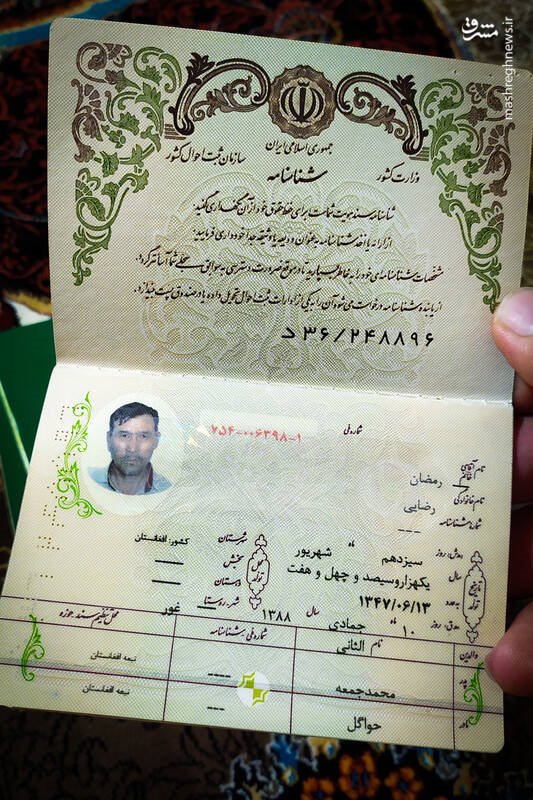 مشرق
mashreghnews.ir
جمهوری اسلامی ایران
وزارت کشور
سازمان ثبت احوال کشور
شناسنامه
شناسنامه سند هویت شماست برای حفظ حقوق خود از آن نگهداری کنید.
از ارائه یا اخذ شناسنامه بعنوان ودیعه یا وثیقه جداً خودداری فرمایید.
مشخصات شناسنامه‌ای خود را به خاطر بسپارید تا در مواقع ضرورت دسترسی به سوابق سجلی شما آسانتر گردد.
از یابنده شناسنامه درخواست می‌شود آن را به یکی از ادارات ثبت احوال تحویل داده یا در صندوق پست بیندازد.
د۳۶/۲۴۸۸۹۶
شماره ملی
۷۵۴-۰۰۶۳۹۸-۱
نام آقای خانم
رمضان
نام خانوادگی
رضایی
شماره شناسنامه
---
روز
سیزدهم
ماه
شهریور
سال
یکهزاروسیصد و چهل و هفت
به عدد
۱۳۴۷/۰۶/۱۳
روز
۱۰
ماه
جمادی الثانی
سال
۱۳۸۸
تاریخ تولد
محل تولد
شهرستان
کشور: افغانستان
بخش
دهستان
شهر-روستا
غور
والدین
نام
شماره ملی-شناسنامه
محل تنظیم سند-حوزه
پدر
محمدجمعه
----
تبعه افغانستان
مادر
حواگل
---
تبعه افغانستان